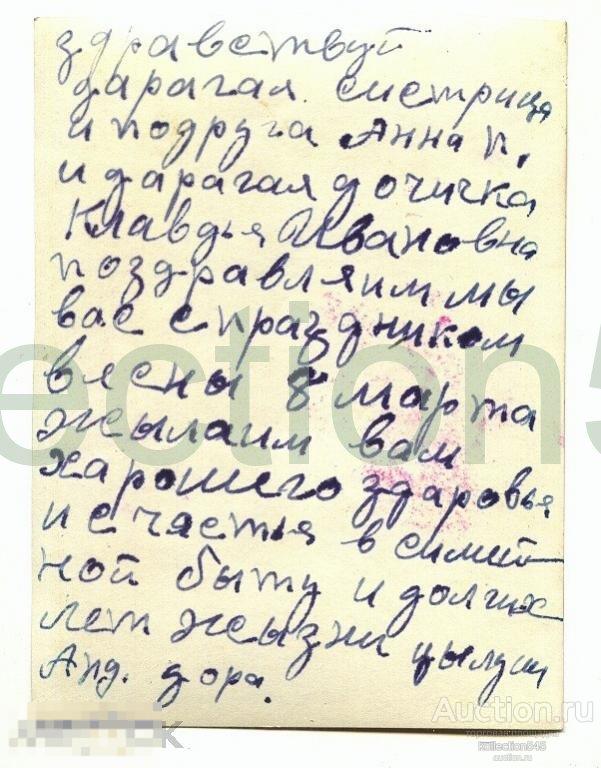 здравствуй
дарагая систрица
и подруга Анна п.
и дарагая дочичка
Клавдья Ивановна
поздравляим мы
вас с праздником
вясны 8 марта
жылаим вам
харошего здаровья
и счастья в симей
ной быту и долгих
лет жызни цылуим
Анд. дора.
ection5
Auction.ru
торговая площадка
Kollection545
auction.ru